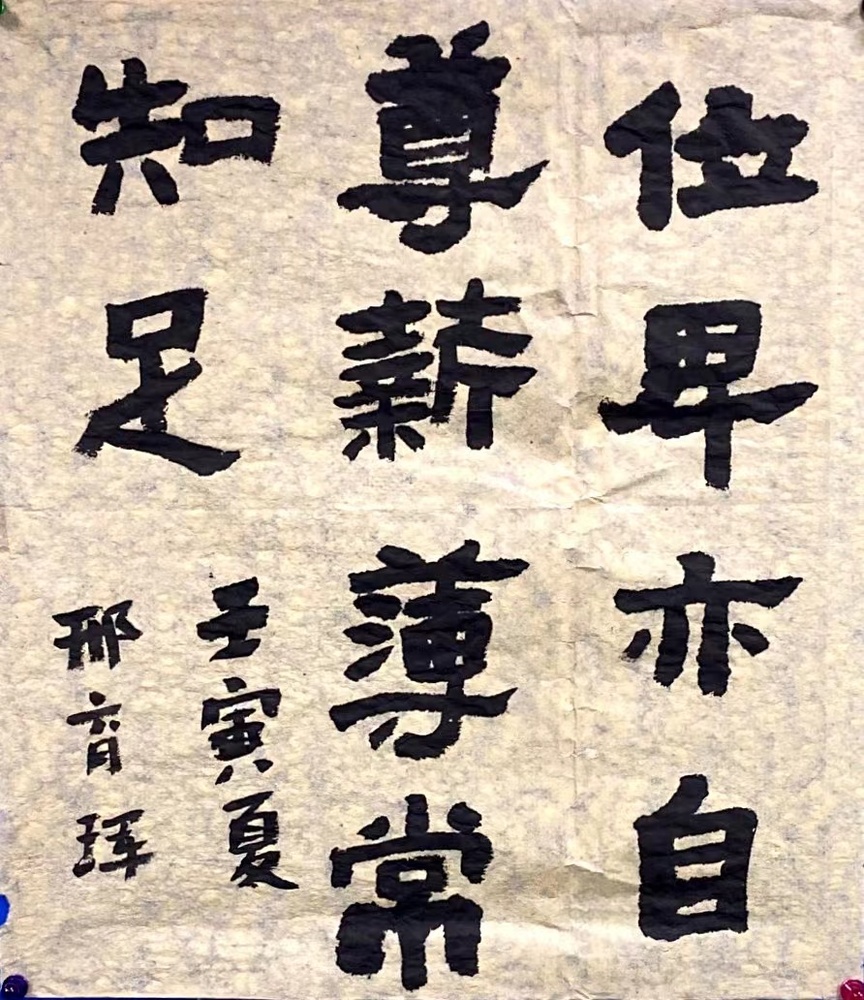 位卑亦自
尊薪薄常
知足
壬寅夏
邢育珲